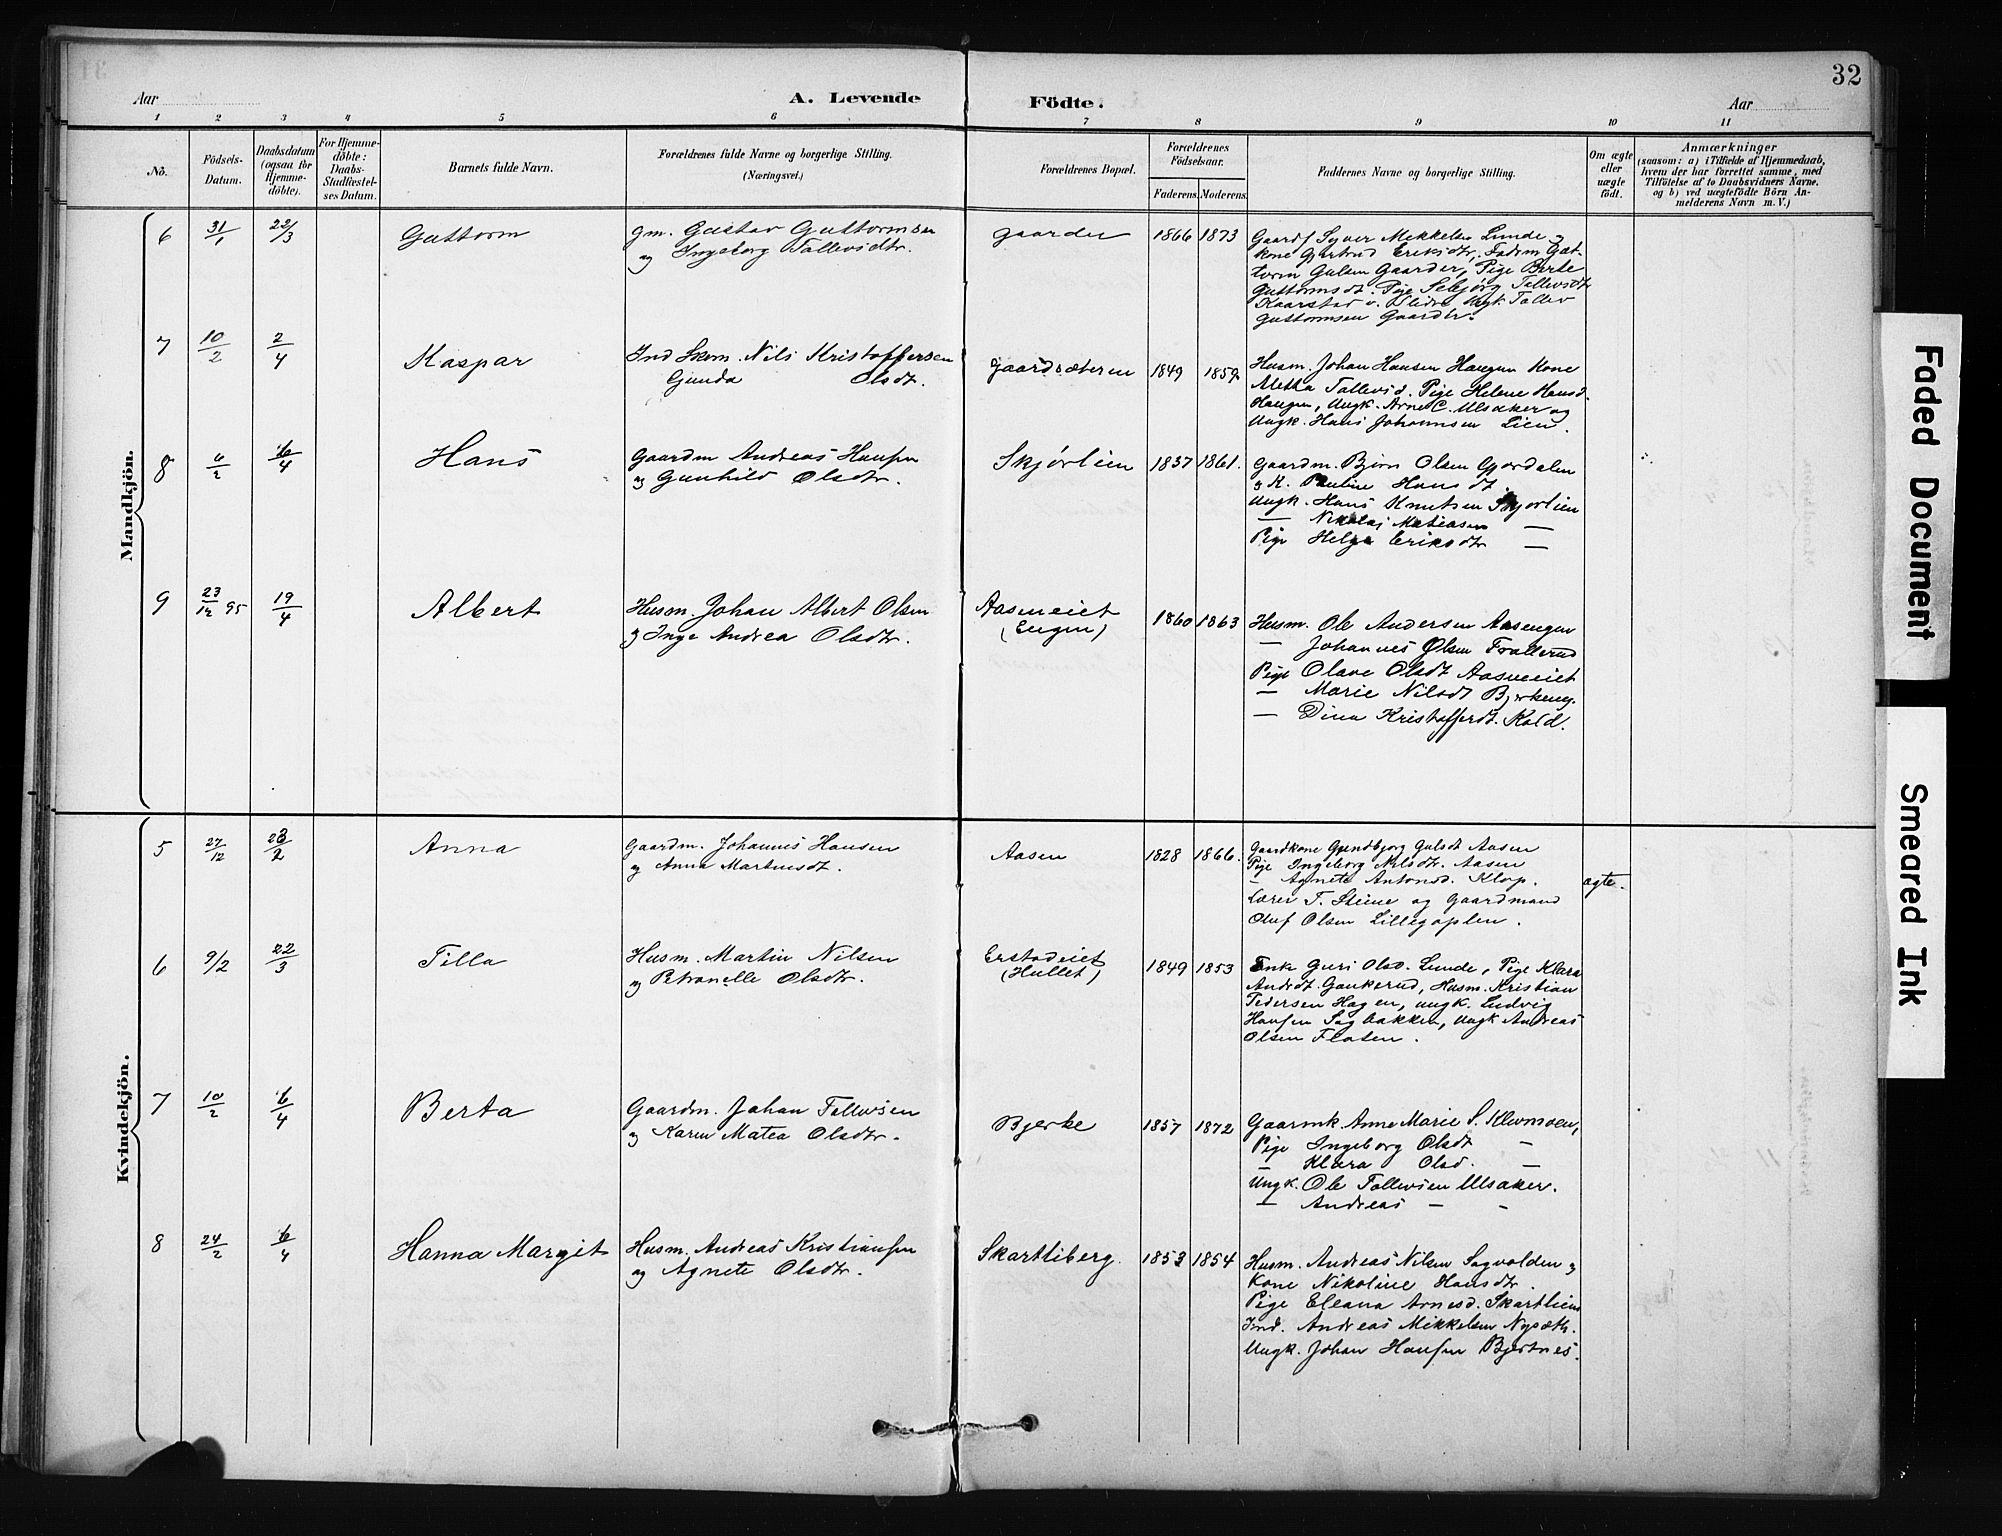 32
Aar
A. Levende
Födte.
Aar
1 2 3 4 5 6 7 8 9 10 11
No.
Födsels-
Datum.
Daabsdatum
(ogsaa for
Hjemme-
döbte).
For Hjemme-
döbte:
Daabs-
Stadfæstel-
ses Datum.
Barnets fulde Navn.
Forældrenes fulde Navne og borgerlige Stilling.
(Næringsvei.)
Forældrenes Bopæl.
Forældrenes
Födselsaar.
Faderens. Moderens.
Faddernes Navne og borgerlige Stilling.
Om ægte
eller
uægte
födt.
Anmærkninger
(saasom: a) i Tilfælde af Hjemmedaab,
hvem der har forrettet samme, med
Tilföielse af to Daabsvidners Navne.
og b) ved uægtefödte Börn An-
melderens Navn m. V.)
Mandkjön.
6 31/1 22/3 Guttorm
gm. Gustav Guttormsen
og Ingeborg Tollevsdtr.
Gaarder 1866 1873
Gaardf Syver Mekkelsen Lunde og
kone Gjertrud Eriksdtr, Fadrm Gut-
torm Gulsen Gaarder, Pige Berte
Guttormsdt. Pige Sebjørg Tollevsdt
Kaarstad v. Slidre Ungk. Tollev
Guttormsen Gaarder.
7 10/2 2/4 Kaspar
Ind Skom. Nils Kristoffersen
Gunda Olsdt.
Gaardsæteren 1849 1859
Husm. Johan Hansen Haugen Kone
Aletha Tollevsd. Pige Helene Hansd.
Haugen, Ungk. Arne C. Ulsaker og
Ungk. Hans Johannsen Lien.
8 6/2 6/4 Hans
Gaardm Andreas Hansen
og Gunhild Olsdtr.
Skjørlien 1837 1861.
Gaardm. Bjørn Olsen Gjordalen
og K. Pauline Hansdt.
Ungk. Hans Knutsen Skjorlien
— Nikolaj Matiasen —
Pige Helga Eriksdtr —
9 23/12 95 19/4 Albert
Husm. Johan Albert Olsen
og Inge Andrea Olsdtr.
Aasmeiet
(Engen)
1860 1863
Husm. Ole Andersen Aasengen
— Johannes Olsen Trollerud
Pige Olave Olsdt Aasmeiet
— Marie Nilsdt Bjerkeng.
— Dina Kristofferdt. Kold.
Kvindekjön.
5 27/12 23/2 Anna
Gaardm. Johannes Hansen
og Anna Martinsdt.
Aasen 1828 1866.
Gaardkone Gjendbjorg Gulsdt Aasen
Pige Ingeborg Nilsdtr. Aasen
— Agnete Antonsd. Klop.
Lærer T. Steine og Gaardmand
Oluf Olsen Lillegoplen.
ægte.
6 9/2 22/3 Tilla
Husm. Martin Nilsen
og Petronelle Olsdtr.
Erstadeiet
(Hullet)
1849 1853
Enk Guri Olsd. Lunde, Pige Klara
Andrdt. Gaukerud, Husm. Kristian
Pedersen Hagen, ungk. Ludvig
Hansen Sagbakken, Ungk Andreas
Olsen Flaten.
7 10/2 6/4 Berta
Gaardm. Johan Tollevsen
og Karen Matea Olsdtr.
Bjerke 1857 1872
Gaarmk. Anne Marie S. Klevmoen,
Pige Ingeborg Olsdt —
— Klara Olsd. —
Ungk. Ole Tollevsen Ulsaker.
— Andreas — -
8 24/2 6/4 Hanna Margit
Husm. Andreas Kristiansen
og Agnete Olsdtr.
Skartliberg. 1853 1854
Husm. Andreas Nilsen Sagvolden og
Kone Nikoline Hansdtr.
Pige Eleana Arnesd. Skartliens
Ind. Andreas Mikkelsen Nysæth.
Ungk. Johan Hansen Bjertnes.
Faded Document
Smeared Ink